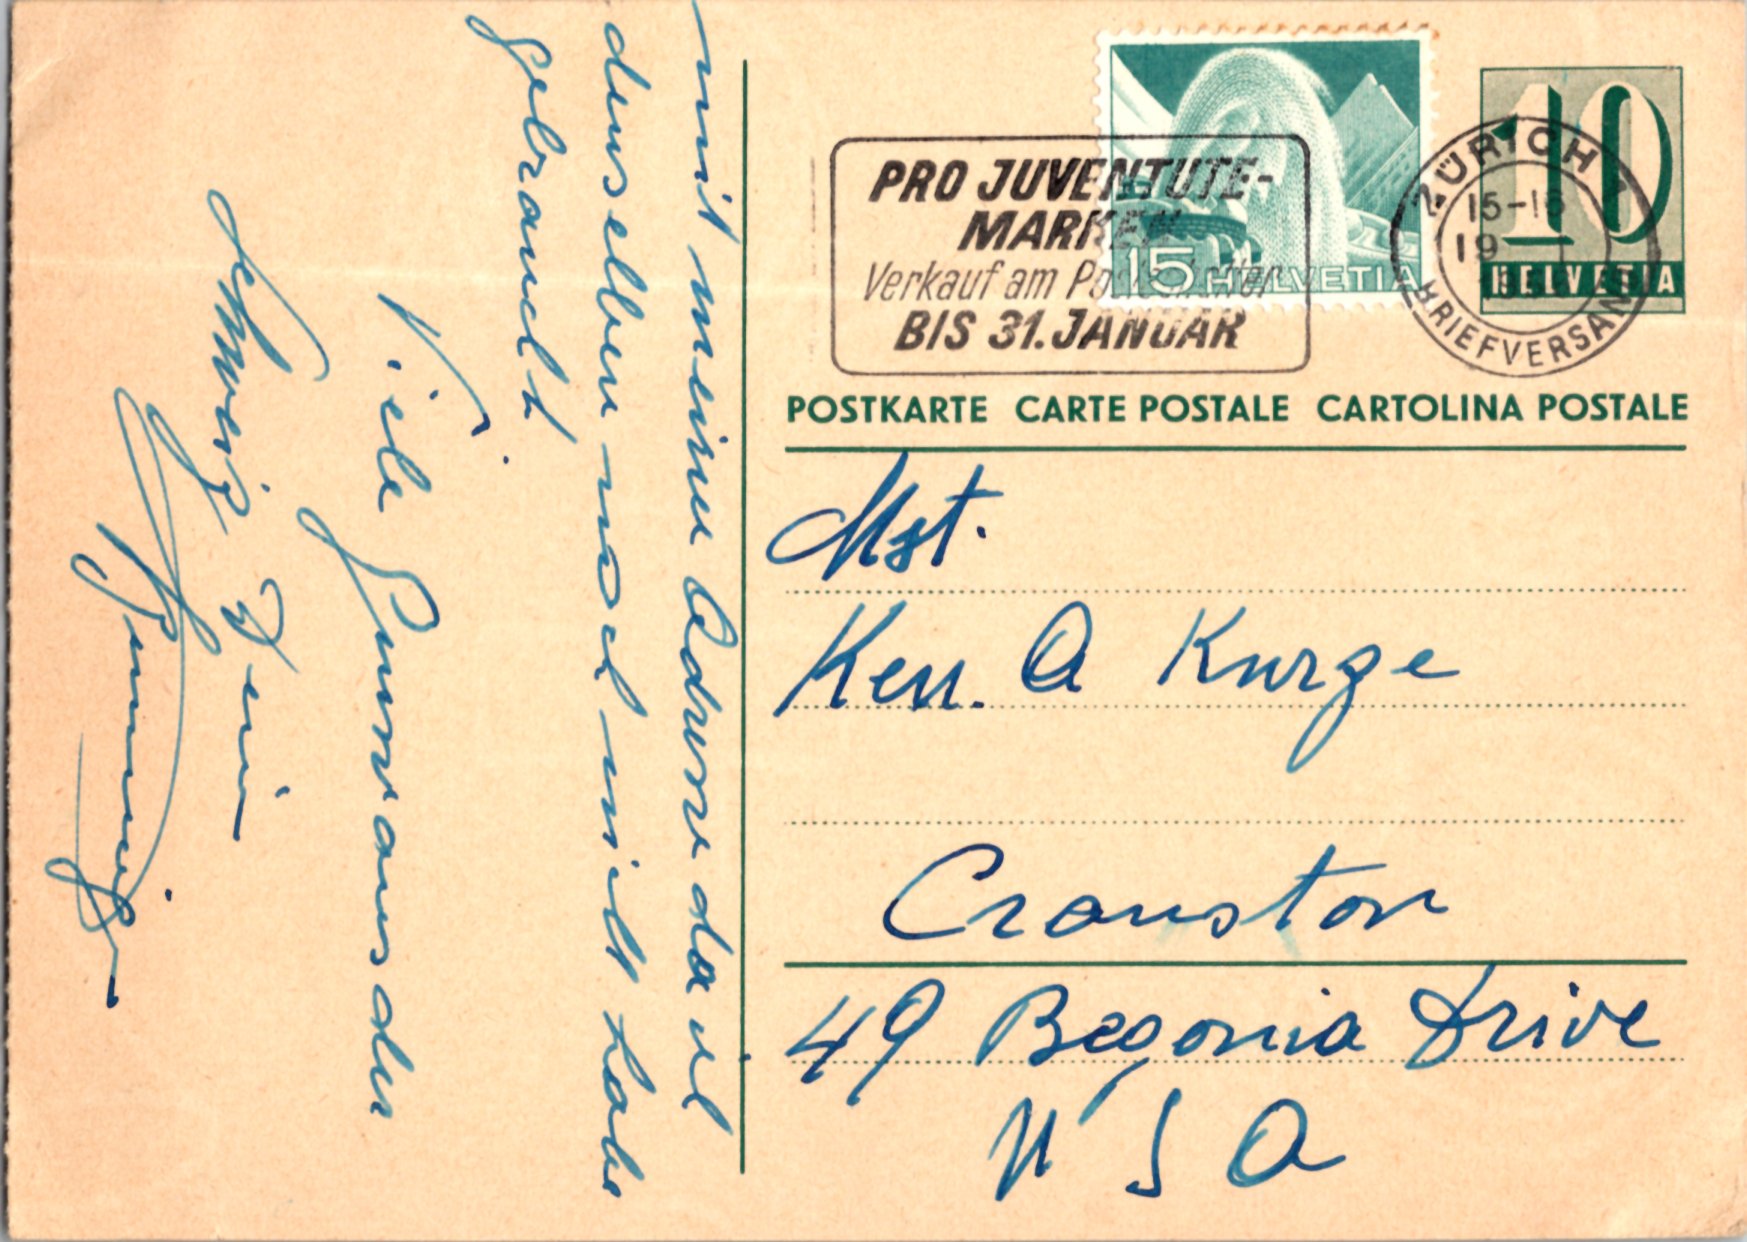 mit meine Adresse da ich
denselben noch nicht habe
gebraucht
Viele Grüsse aus der
Schweiz Dein
PRO JUVENTUTE-
MARKEN
Verkauf am Postschalter
BIS 31. JANUAR
15 HELVETIA
ZÜRICH 1
15-16
19
BRIEFVERSAND
10
HELVETIA
POSTKARTE CARTE POSTALE CARTOLINA POSTALE
Mst.
Ken. A Kurze
Cranston
49 Begonia Drive
U S A